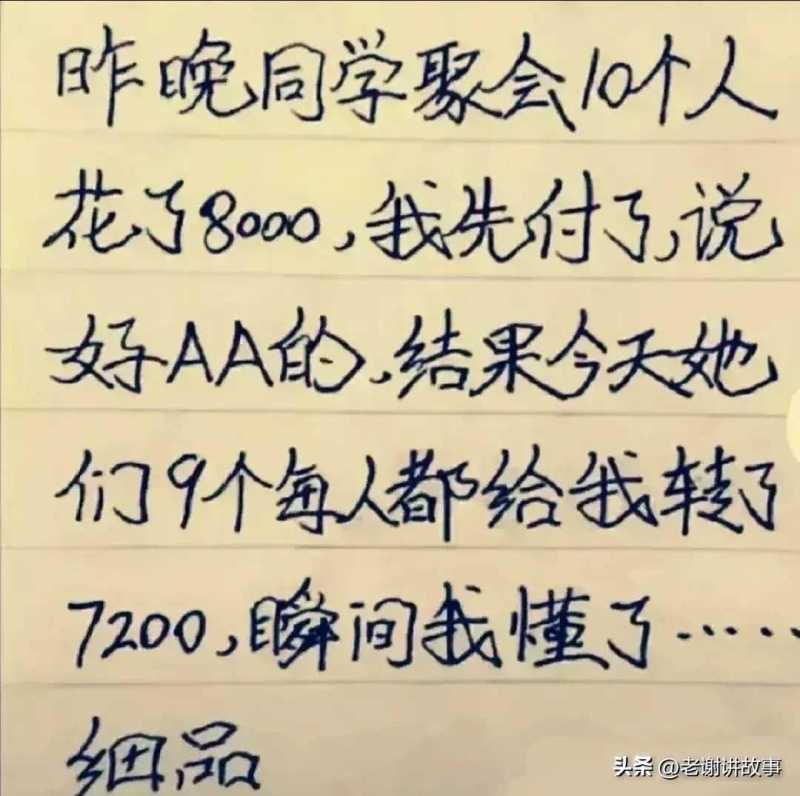 昨晚同学聚会10个人
花了8000,我先付了,说
好AA的,结果今天她
们9个每人都给我转了
7200,瞬间我懂了·····
细品
头条 @老谢讲故事